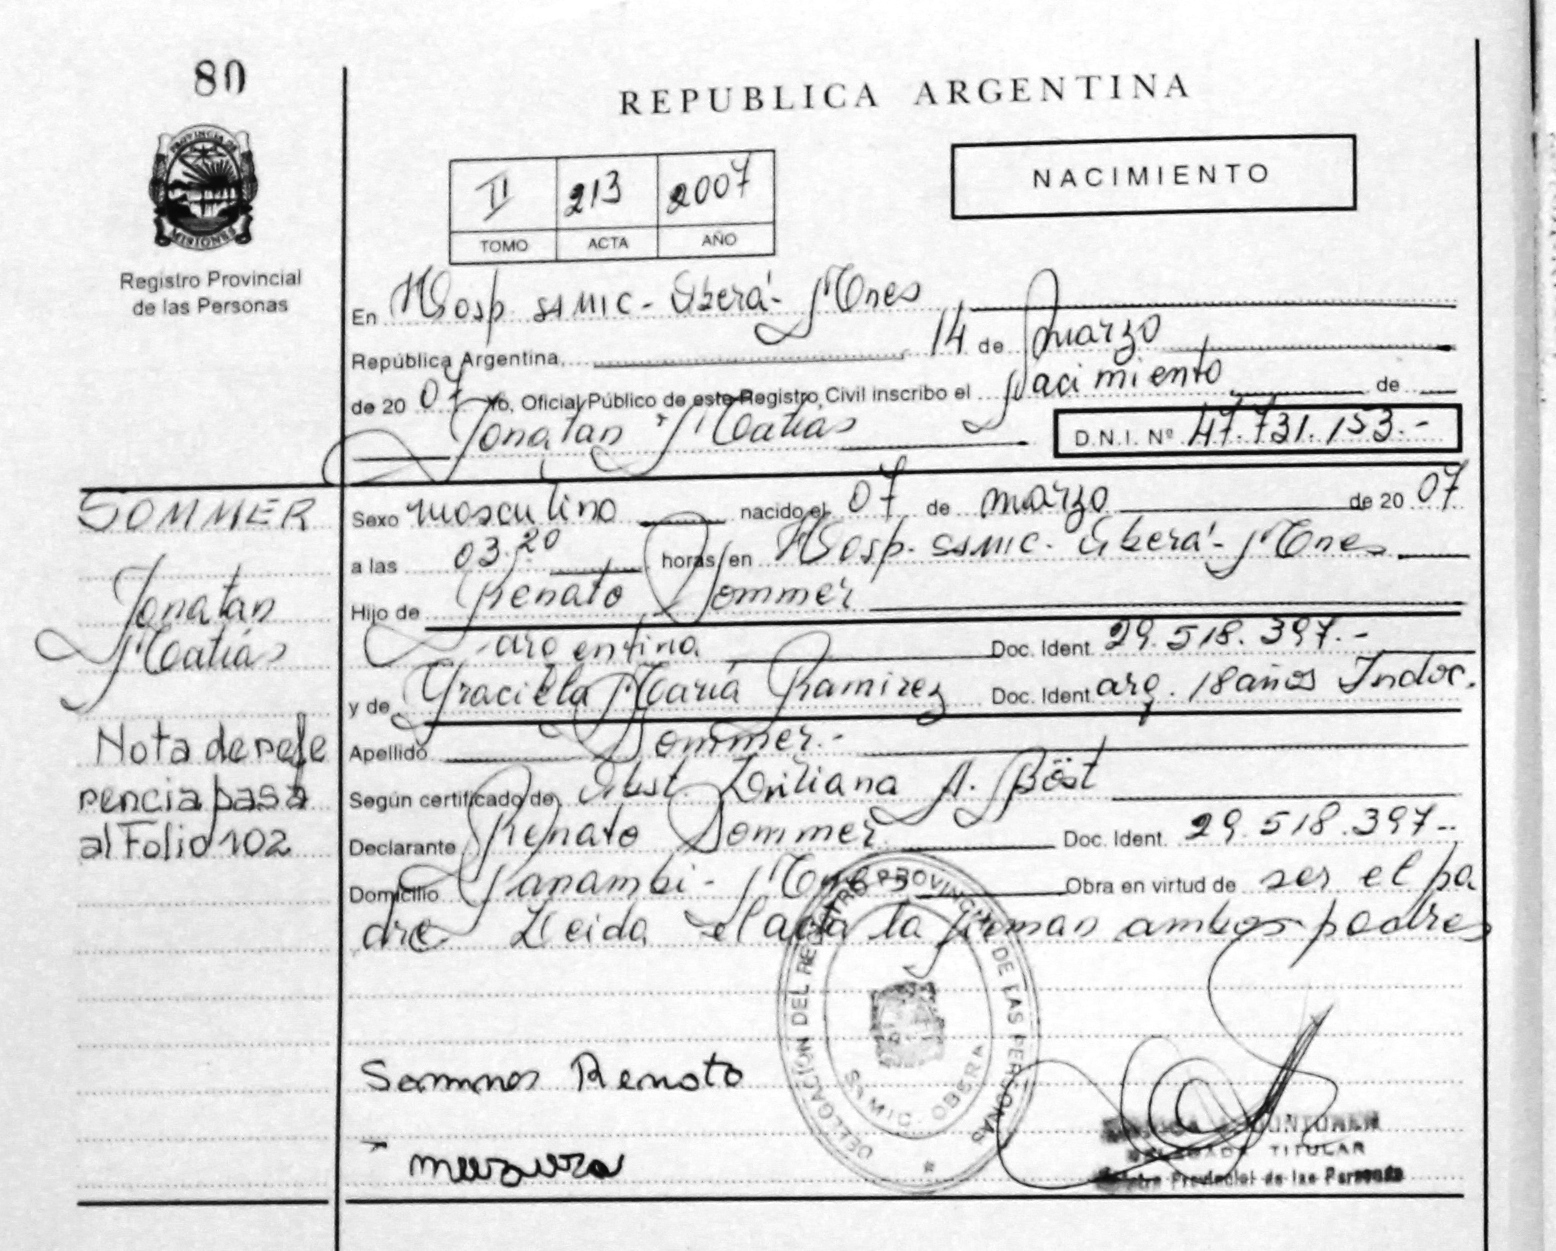 80
REPUBLICA ARGENTINA
PROVINCIA DE
MISIONES
Registro Provincial
de las Personas
II 213 2007
TOMO ACTA AÑO
NACIMIENTO
En Hosp. SAMIC - Oberá - Mnes
República Argentina, 14 de marzo
de 20 07 Yo, Oficial Público de este Registro Civil inscribo el Nacimiento de
Jonatan Matías
D.N.I. Nº 47.731.153.-
SOMMER
Jonatan
Matías
Nota derefe
rencia pasa
al Folio 102
Sexo masculino nacido el 07 de marzo de 20 07
a las 03.20 horas en Hosp. SAMIC. Oberá - Mnes
Hijo de Renato Sommer
argentino Doc. Ident. 29.518.397.-
y de Graciela María Ramirez Doc. Ident arg. 18 años Indoc.
Apellido Sommer.-
Según certificado de Obst. Liliana A. Böst
Declarante Renato Sommer Doc. Ident. 29.518.397.-
Domicilio Panambí - Mnes Obra en virtud de ser el pa
dre Leida el acta la firman ambos padres
DELEGACIÓN DEL REGISTRO PROVINCIAL DE LAS PERSONAS
SAMIC. OBERA
Sommer Renato
TITULAR
Provincial de las Personas